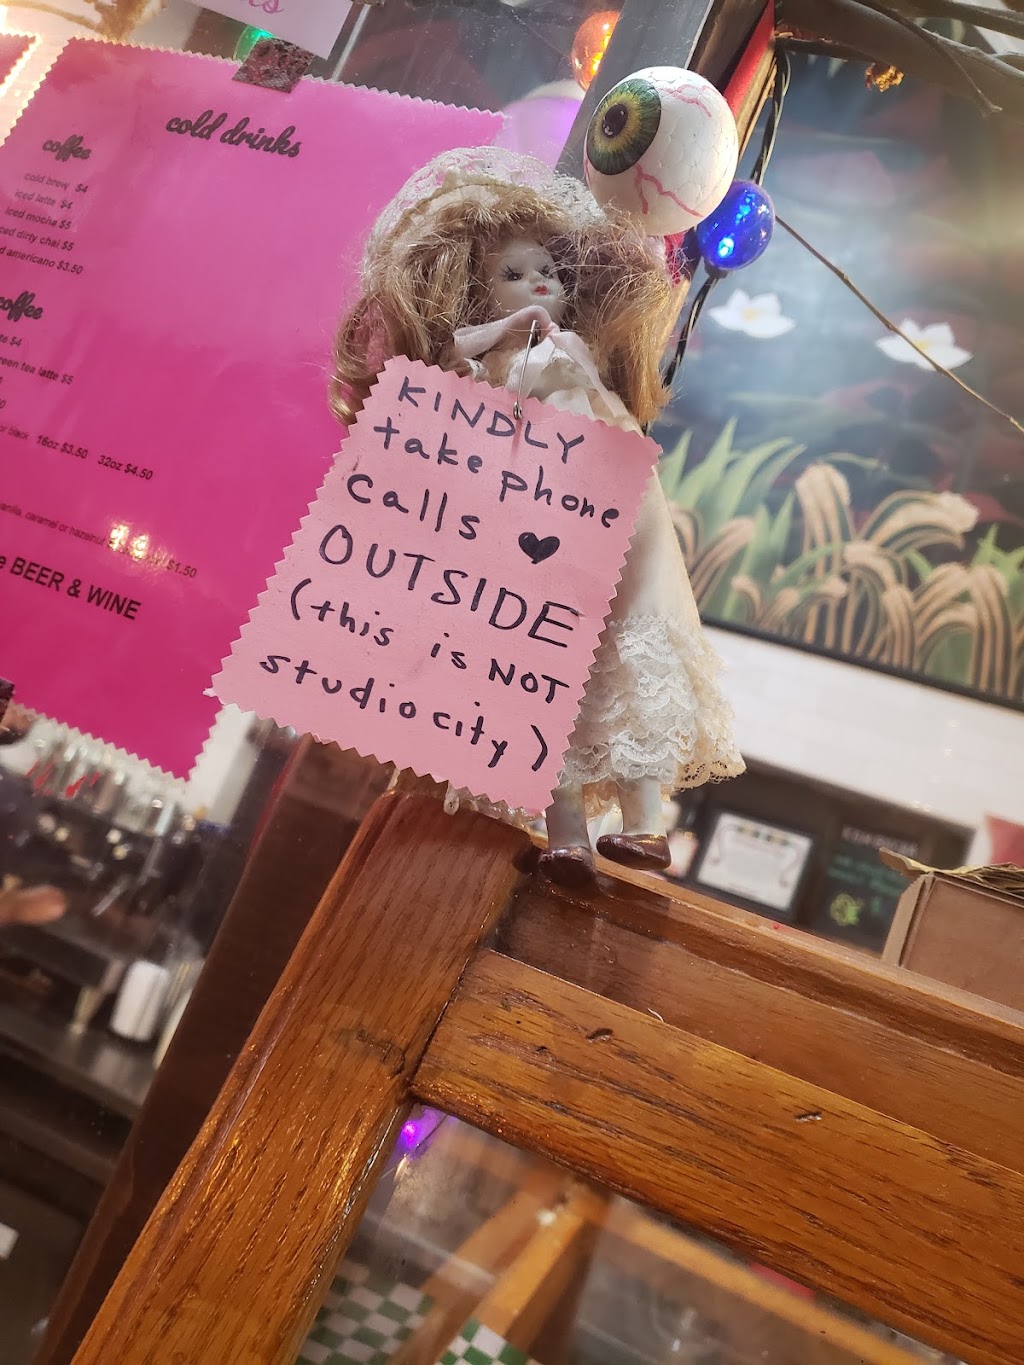 cold drinks
coffee
cold brew $4
iced latte $4
iced mocha $5
dirty chai $5
americano $3.50
coffee
$4
green tea latte $5
or black 16oz $3.50 32oz $4.50
vanilla, caramel or hazelnut $1.50
BEER & WINE
KINDLY
take phone
calls ♥
OUTSIDE
(this is NOT
studio city)